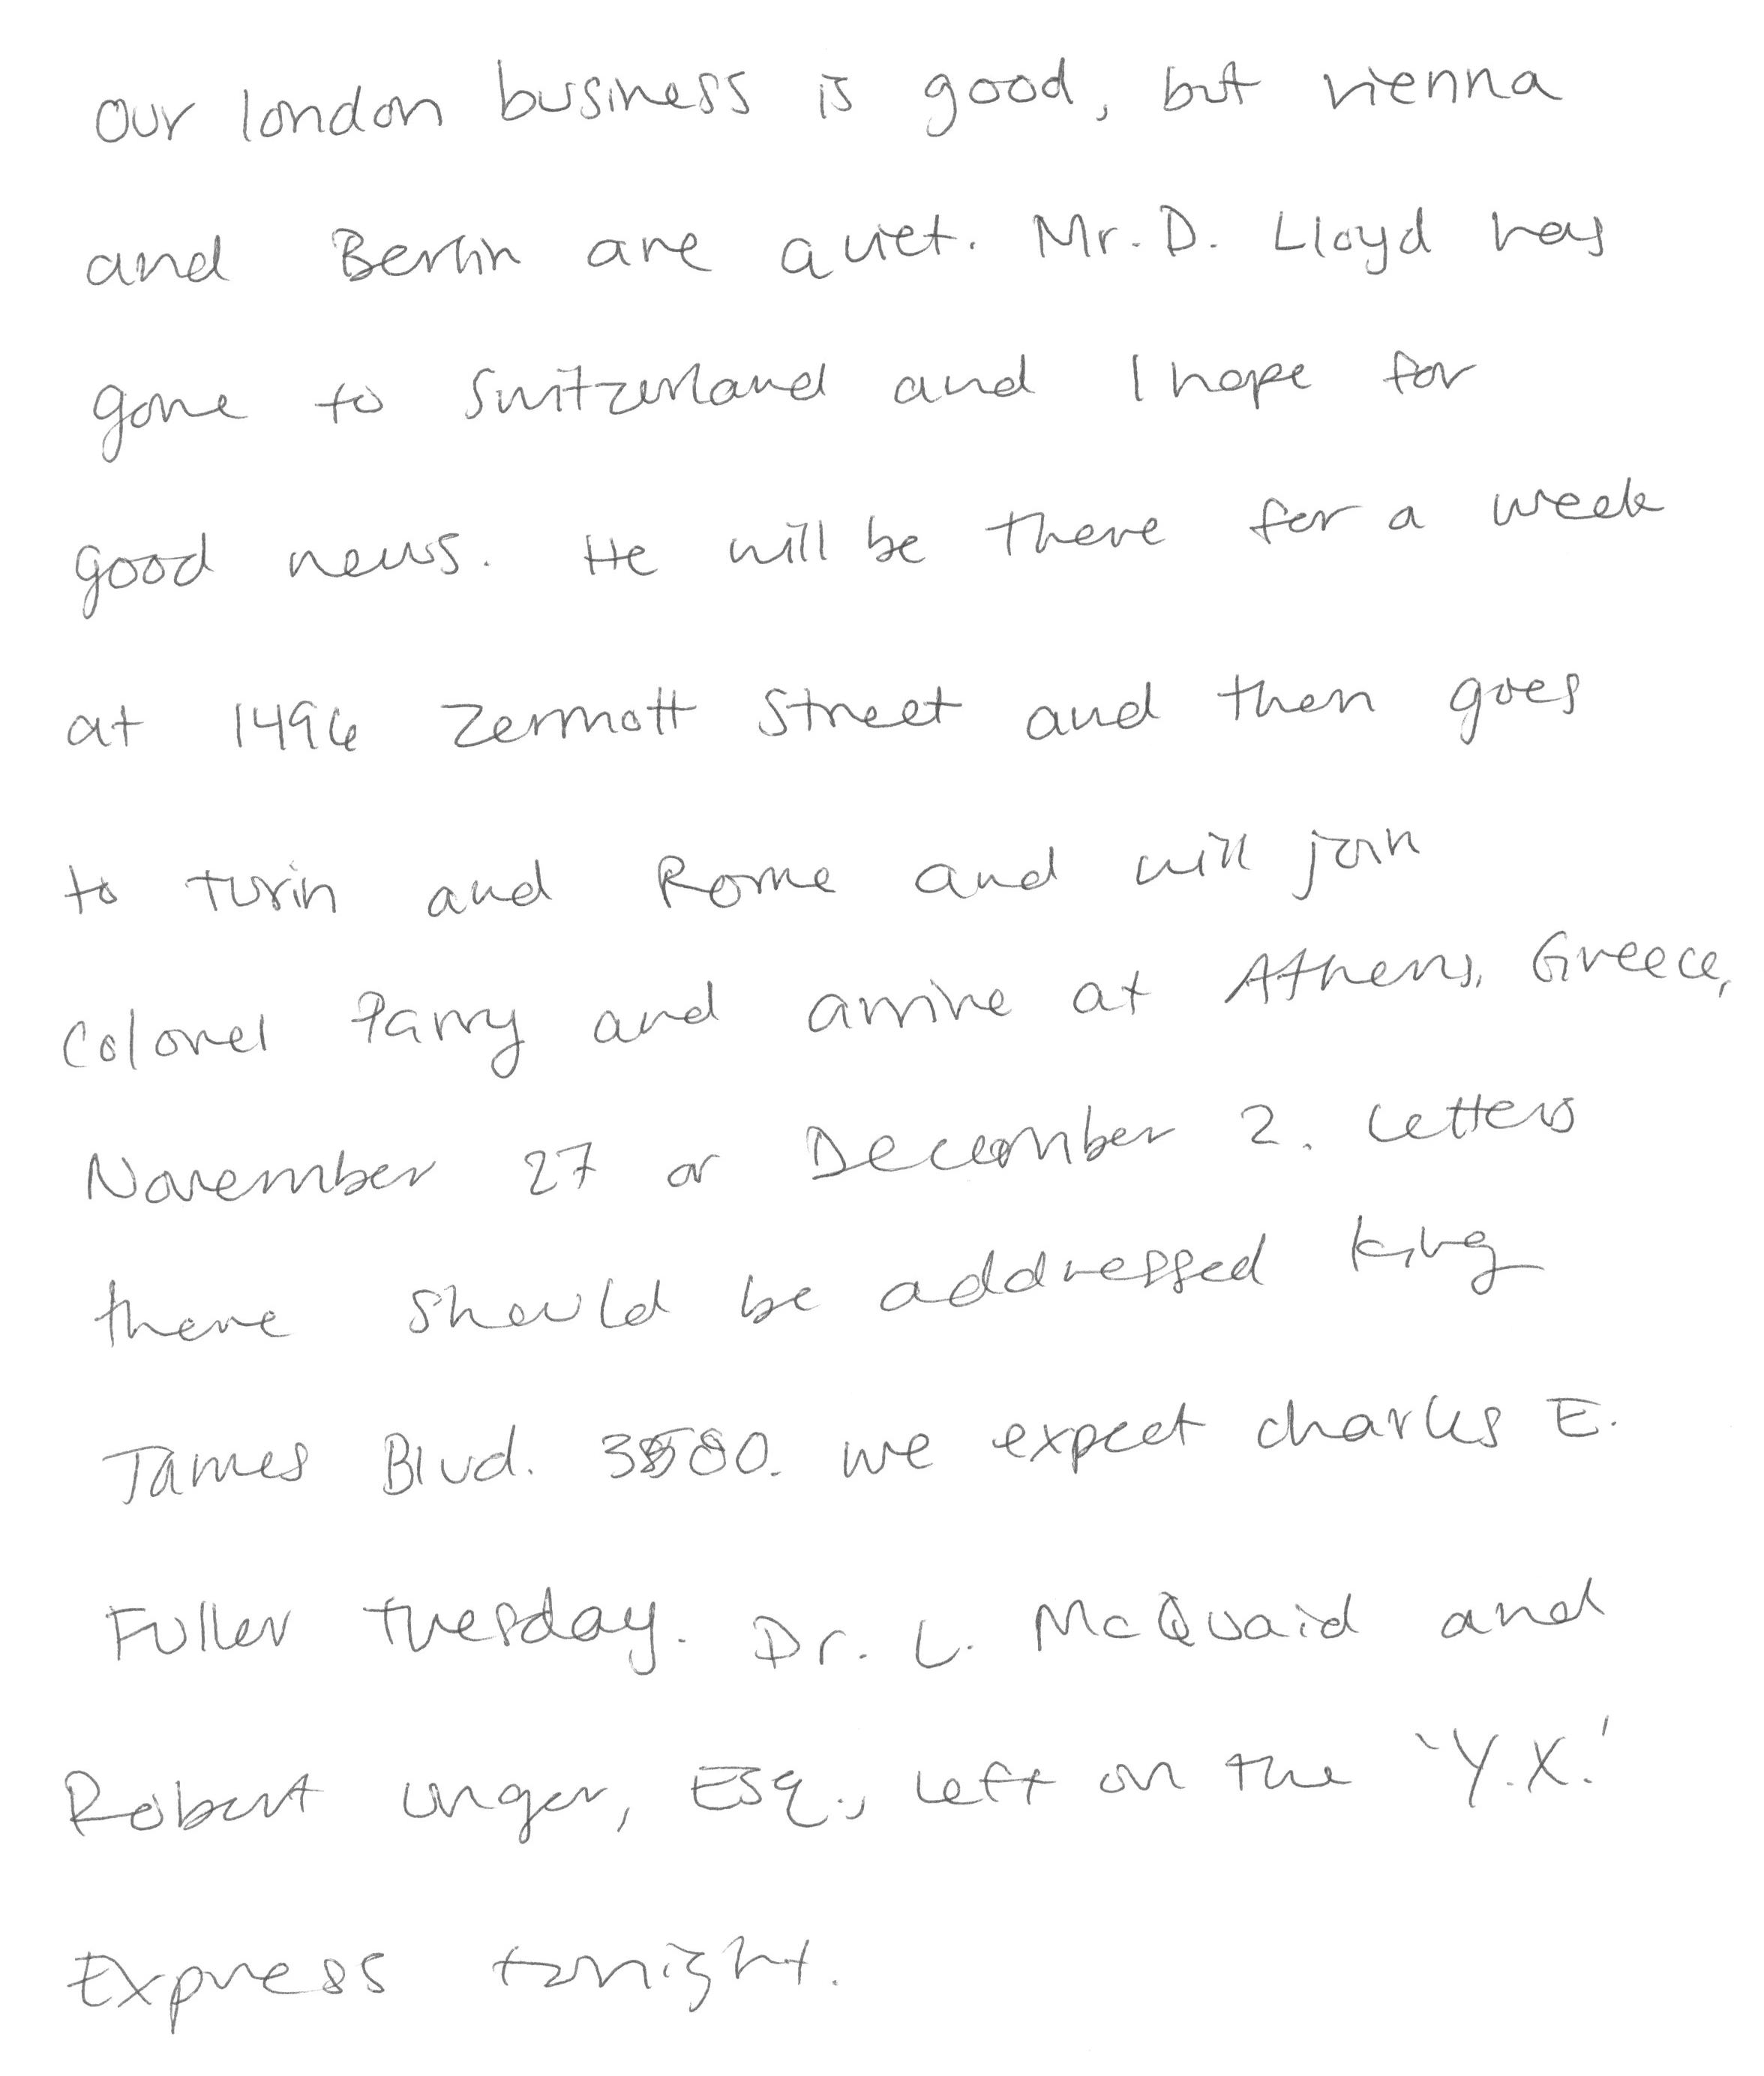 Our london business is good, but vienna
and Berlin are quiet. Mr. D. Lloyd has
gone to Switzerland and I hope for
good news. He will be there for a week
at 1496 Zermott Street and then goes
to turin and Rome and will join
Colonel Parry and arrive at Athens, Greece,
November 27 or December 2. Letters
there should be addressed King
James Blvd. 3580. we expect charles E.
Fuller tuesday. Dr. L. McQuaid and
Robert unger, Esq., left on the 'Y.X.'
Express tonight.